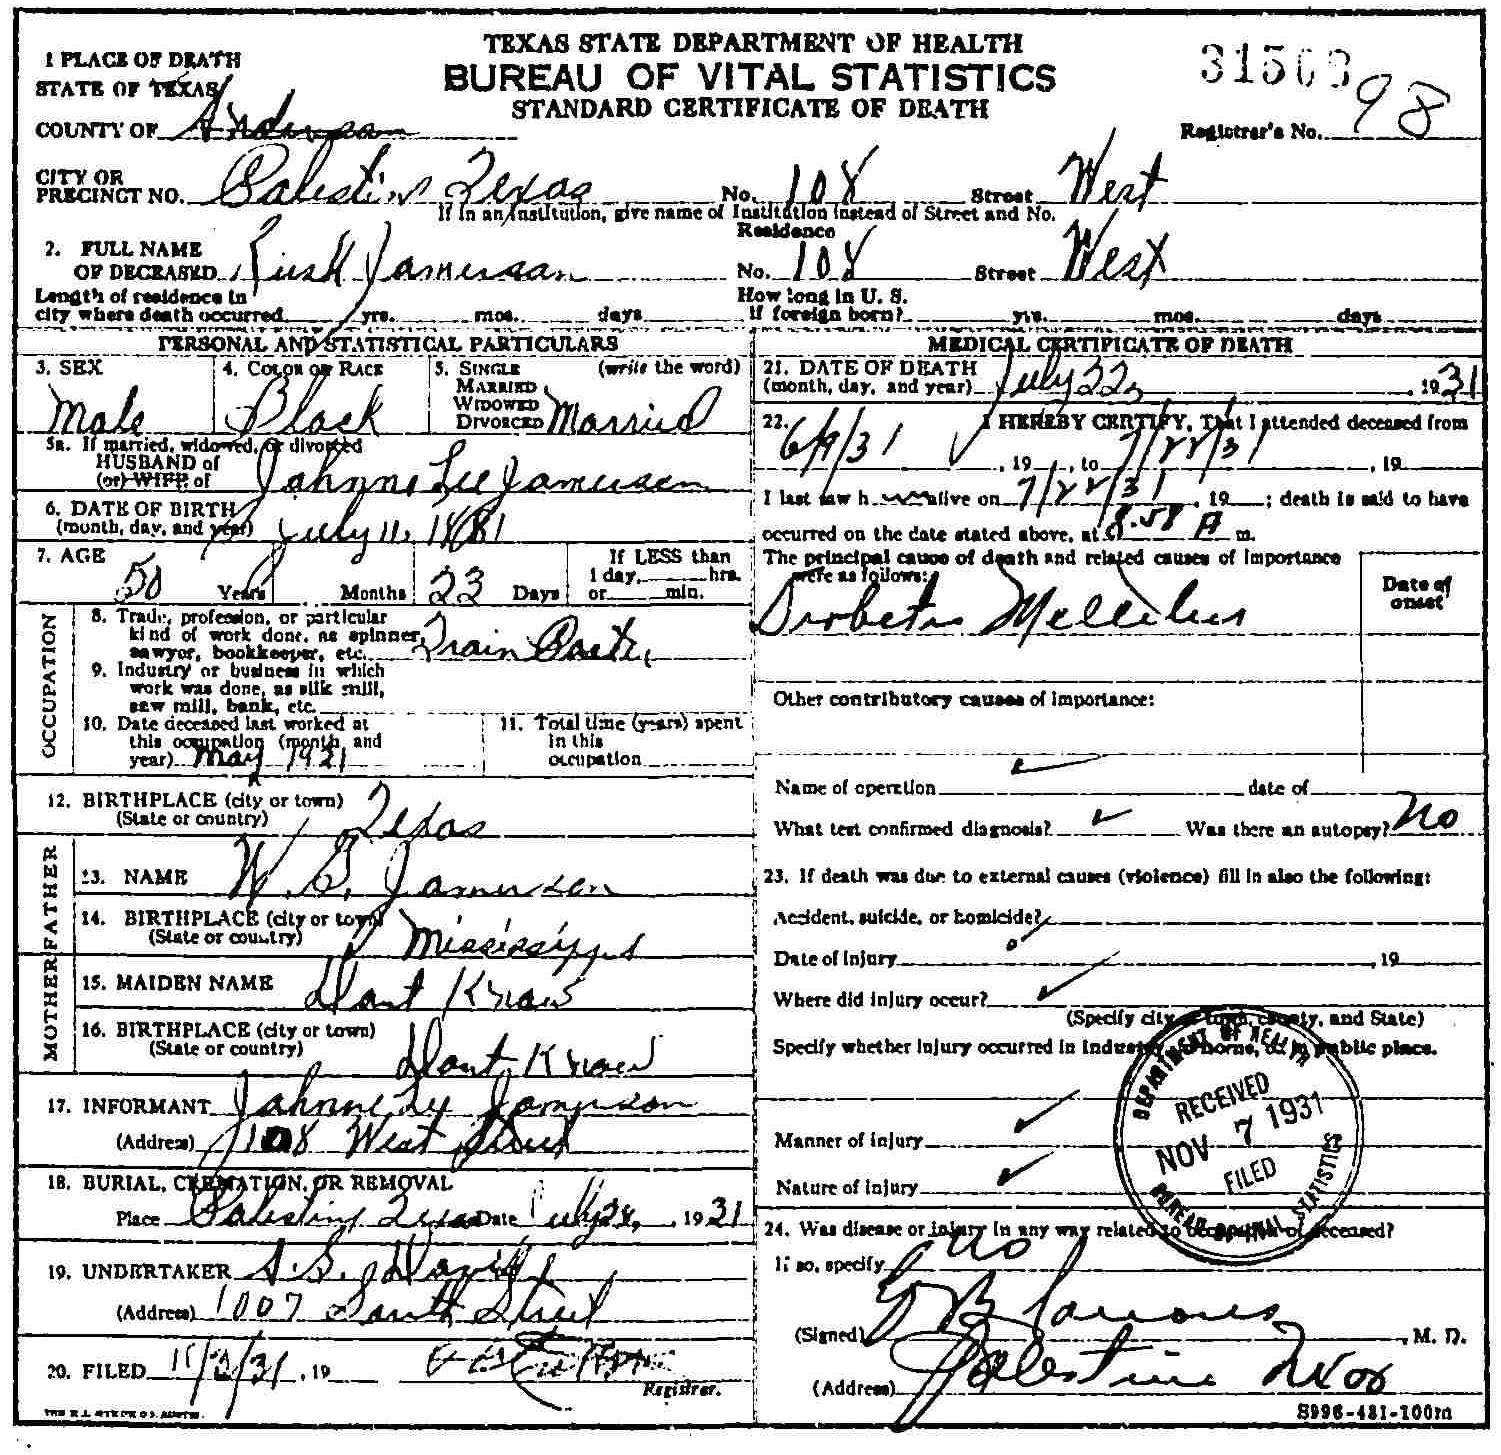 TEXAS STATE DEPARTMENT OF HEALTH
BUREAU OF VITAL STATISTICS
STANDARD CERTIFICATE OF DEATH
31503
Registrar's No. 98
1 PLACE OF DEATH
STATE OF TEXAS
COUNTY OF Anderson
CITY OR
PRECINCT NO. Palestine Texas No. 108 Street West
If in an institution, give name of Institution instead of Street and No.
2. FULL NAME
OF DECEASED Rusk Jamerson
Residence
No. 108 Street West
Length of residence in
city where death occurred yrs. mos. days
How long in U. S.
if foreign born? yrs. mos. days
PERSONAL AND STATISTICAL PARTICULARS
3. SEX
Male
4. COLOR OR RACE
Black
5. SINGLE (write the word)
MARRIED
WIDOWED
DIVORCED Married
5a. If married, widowed, or divorced
HUSBAND of
(or) WIFE of Johnne Lee Jamerson
6. DATE OF BIRTH
(month, day, and year) July 11, 1881
7. AGE
50 Years Months 23 Days
If LESS than
1 day, hrs.
or min.
OCCUPATION
8. Trade, profession, or particular
kind of work done, as spinner,
sawyer, bookkeeper, etc. Train Porter
9. Industry or business in which
work was done, as silk mill,
saw mill, bank, etc.
10. Date deceased last worked at
this occupation (month and
year) May 1931
11. Total time (years) spent
in this
occupation
12. BIRTHPLACE (city or town)
(State or country) Texas
FATHER
13. NAME W. G. Jamerson
14. BIRTHPLACE (city or town)
(State or country) Mississippi
MOTHER
15. MAIDEN NAME Dont Know
16. BIRTHPLACE (city or town)
(State or country) Dont Know
17. INFORMANT Johnne Lee Jamerson
(Address) 108 West Street
18. BURIAL, CREMATION, OR REMOVAL
Place Palestine Texas Date July 24, 1931
19. UNDERTAKER
(Address) 1007 South Street
20. FILED 11/2/31, 19
Registrar.
MEDICAL CERTIFICATE OF DEATH
21. DATE OF DEATH
(month, day, and year) July 22, 1931
22. I HEREBY CERTIFY, That I attended deceased from
6/9/31, 19, to 7/22/31, 19
I last saw h alive on 7/22/31, 19; death is said to have
occurred on the date stated above, at 8:58 A m.
The principal cause of death and related causes of importance
were as follows:
Date of
onset
Diabetes Mellitus
Other contributory causes of importance:
Name of operation date of
What test confirmed diagnosis? Was there an autopsy? No
23. If death was due to external causes (violence) fill in also the following:
Accident, suicide, or homicide?
Date of injury , 19
Where did injury occur?
(Specify city or town, county, and State)
Specify whether injury occurred in industry, in home, or in public place.
Manner of injury
Nature of injury
DEPARTMENT OF HEALTH
RECEIVED
NOV 7 1931
FILED
BUREAU OF VITAL STATISTICS
24. Was disease or injury in any way related to occupation of deceased?
If so, specify No
(Signed) , M. D.
(Address) Palestine Texas
S996-431-100m